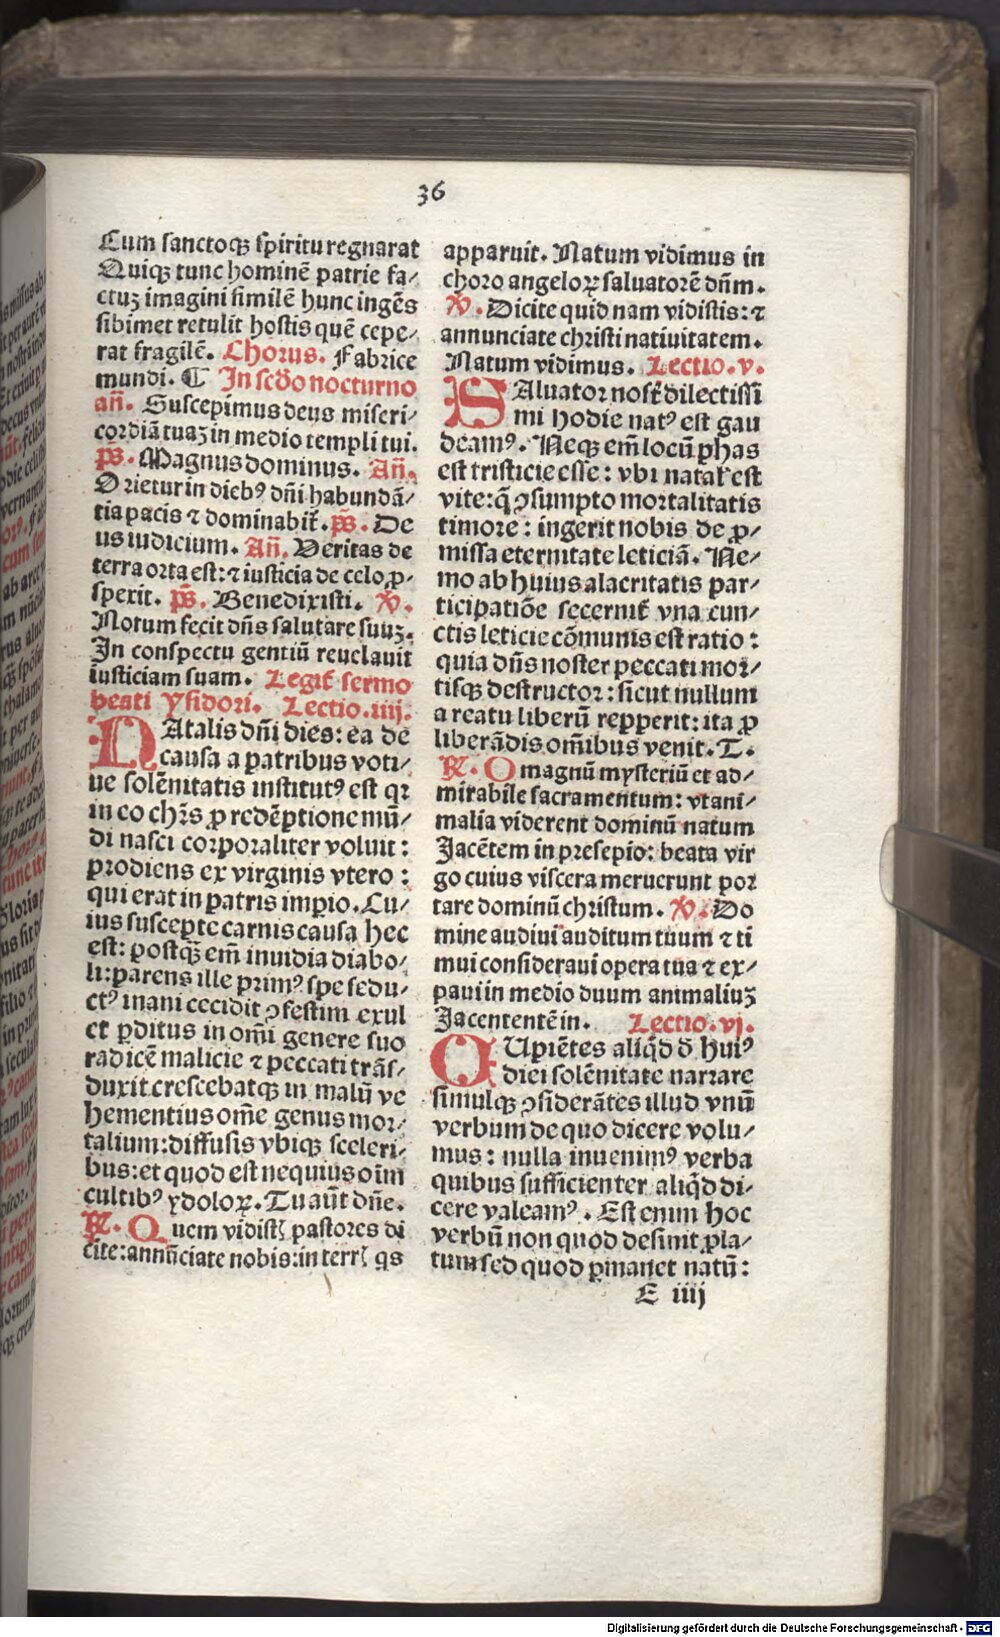 36
Cum sanctoqꝫ spiritu regnarat
Quiqꝫ tunc hominē patrie fa⸗
ctuꝫ imagini similē hunc ingēs
sibimet retulit hostis quē cepe⸗
rat fragilē. Chorus. Fabrice
mundi. ¶ In scđo nocturno
añ. Suscepimus deus miseri⸗
cordiā tuaꝫ in medio templi tui.
p̄s. Magnus dominus. Añ.
Orietur in dieb⁹ dñi habundā⸗
tia pacis ⁊ dominabit̄. p̄s. De
us iudicium. Añ. Veritas de
terra orta est: ⁊ iusticia de celo ꝓ⸗
spexit. p̄s. Benedixisti. ℣.
Notum fecit dñs salutare suuꝫ.
In conspectu gentiū reuelauit
iusticiam suam. Legit̄ sermo
beati Ysidori. Lectio.iiij.
NAtalis dñi dies: ea de
causa a patribus voti⸗
ue solēnitatis institut⁹ est qꝛ
in eo chr̄s ꝓ redēptione mū⸗
di nasci corporaliter voluit:
prodiens ex virginis vtero:
qui erat in patris impio. Cu⸗
ius suscepte carnis causa hec
est: postqꝫ em̄ inuidia diabo⸗
li: parens ille prim⁹ spe sedu⸗
ct⁹ inani cecidit ꝯfestim exul
et ꝑditus in om̄i genere suo
radicē malicie ⁊ peccati trās⸗
duxit crescebatqꝫ in malū ve
hementius om̄e genus mor⸗
talium: diffusis vbiqꝫ sceleri⸗
bus: et quod est nequius oīm
cultib⁹ ydoloꝝ. Tu aūt dñe.
℟. Quem vidistꝭ pastores di
cite: annūciate nobis: in terrꝭ qs
apparuit. Natum vidimus in
choro angeloꝝ saluatorē dñm.
℣. Dicite quid nam vidistis: ⁊
annunciate christi natiuitatem.
Natum vidimus. Lectio.v.
SAluator nost̄ dilectissi
mi hodie nat⁹ est gau
deam⁹. Neqꝫ em̄ locū ꝑhas
est tristicie esse: vbi natal̄ est
vite: q̄ ꝯsumpto mortalitatis
timore: ingerit nobis de ꝓ⸗
missa eternitate leticiā. Ne⸗
mo ab huius alacritatis par⸗
ticipatiōe secernit̄ vna cun⸗
ctis leticie cōmunis est ratio:
quia dñs noster peccati mor⸗
tisqꝫ destructor: sicut nullum
a reatu liberū repperit: ita ꝓ
liberādis om̄ibus venit. T.
℟. O magnū mysteriū et ad⸗
mirabile sacramentum: vt ani⸗
malia viderent dominū natum
Jacētem in presepio: beata vir
go cuius viscera meruerunt por
tare dominū christum. ℣. Do
mine audiui auditum tuum ⁊ ti
mui consideraui opera tua ⁊ ex⸗
paui in medio duum animaliuꝫ
Jacententē in. Lectio.vj.
CUpiētes aliq̄d đ hui⁹
diei solēnitate narrare
simulqꝫ ꝯsiderātes illud vnū
verbum de quo dicere volu⸗
mus: nulla inuenim⁹ verba
quibus sufficienter aliq̄d di⸗
cere valeam⁹. Est enim hoc
verbū non quod desinit ꝓla⸗
tum sed quod ꝑmanet natū:
E iiij
Digitalisierung gefördert durch die Deutsche Forschungsgemeinschaft - DFG